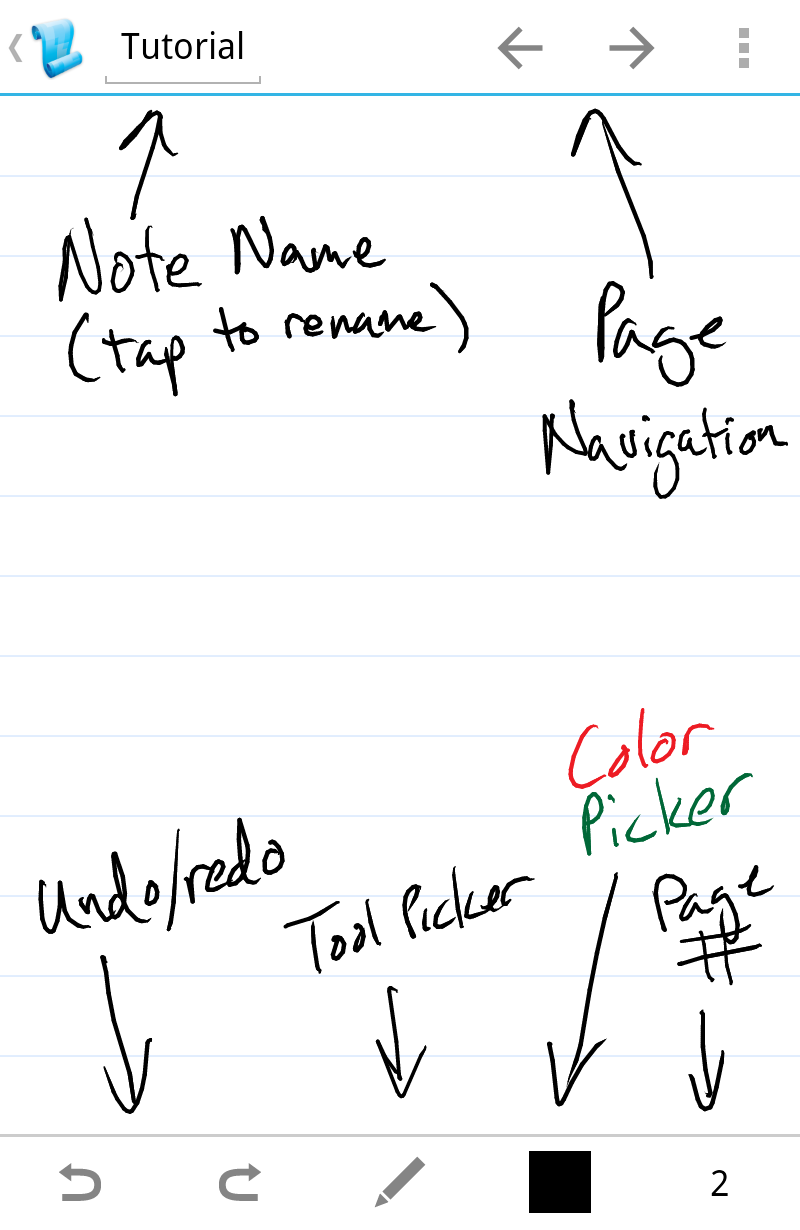 Tutorial
Note Name
(tap to rename)
Page
Navigation
Color
Picker
Undo/redo
Tool Picker
Page
#
2